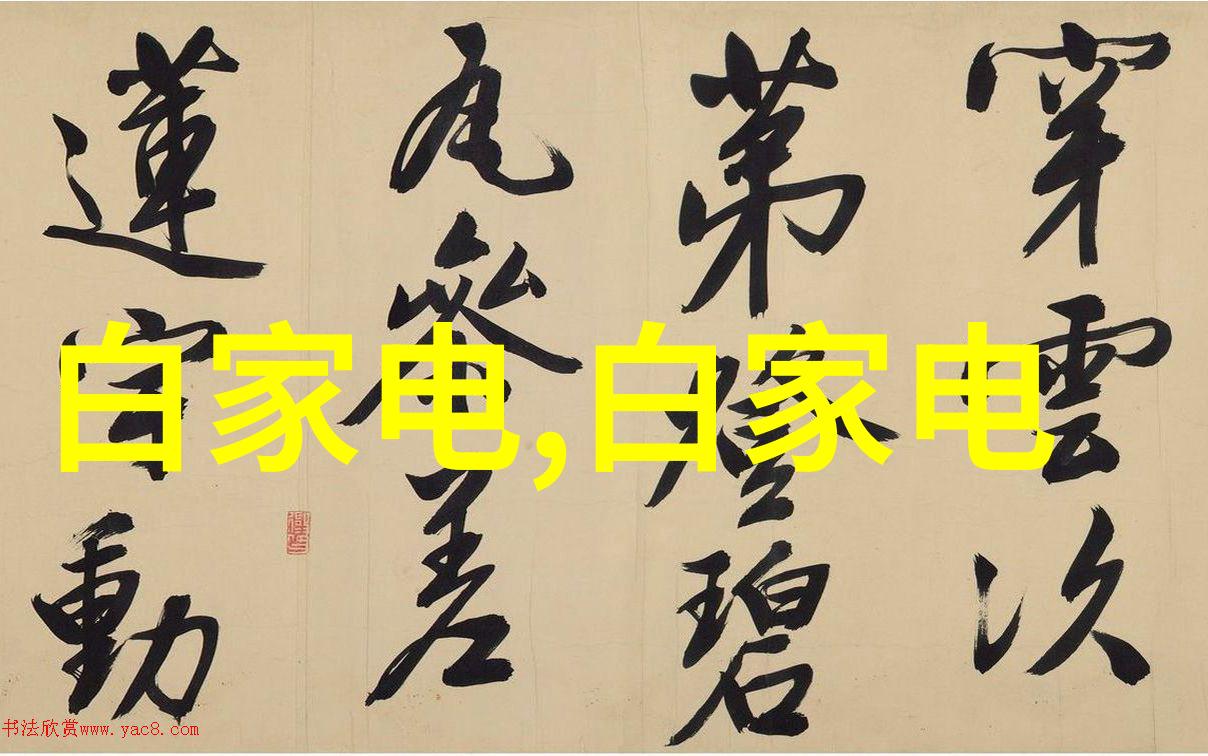 穿雲次
第碧
瓦參差
蓮動
白家电,白家电
书法欣赏www.yac8.com